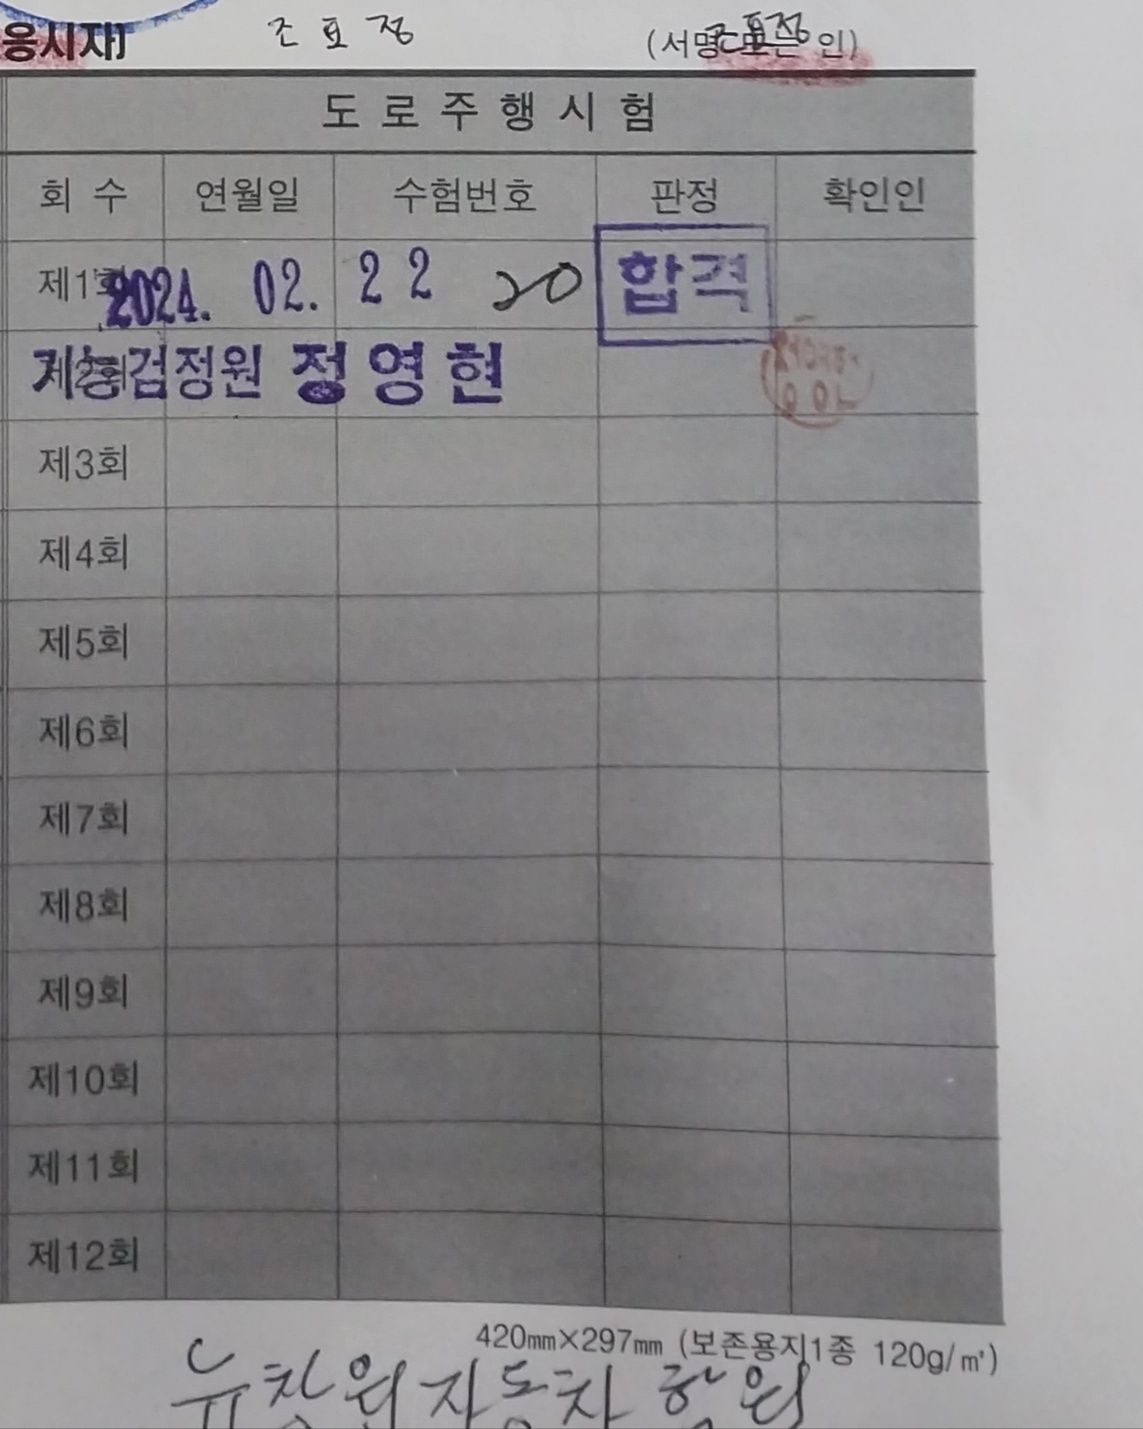 응시자] 조효정 (서명 또는 인)
도로주행시험
회 수 연월일 수험번호 판정 확인인
제1회 2024. 02. 22 20 합격
기능검정원 정영현
제3회
제4회
제5회
제6회
제7회
제8회
제9회
제10회
제11회
제12회
420㎜×297㎜ (보존용지1종 120g/㎡)
뉴창원자동차학원